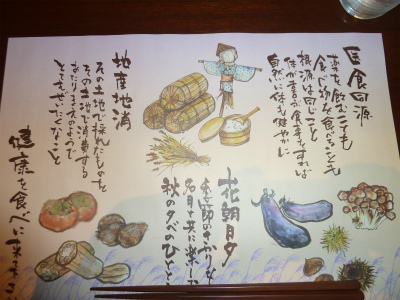 医食同源
薬を飲むことも
食べ物を食べることも
根源は同じこと
体が喜ぶ食事をすれば
自然に体も健やかに
地産地消
その土地で採れたものを
その土地で消費する
あたりまえのようで
とてもぜいたくなこと
花朝月夕
名月と共に楽しむ
秋の夕べのひと
健康を食べに来ませんか